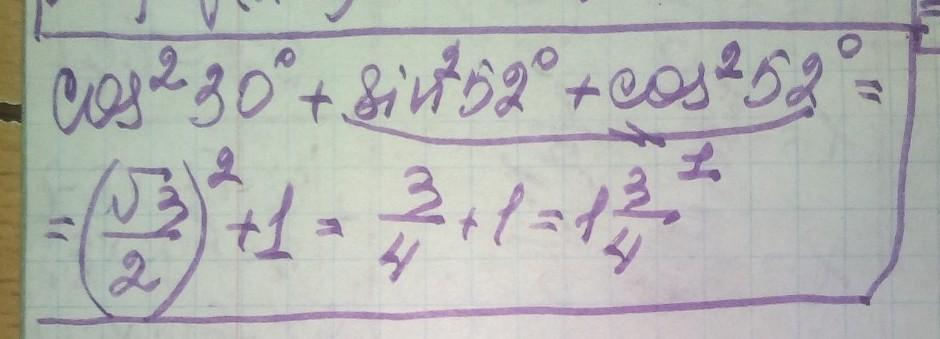 cos²30° + sin²52° + cos²52° =
1
= (√3/2)² + 1 = 3/4 + 1 = 1 3/4.